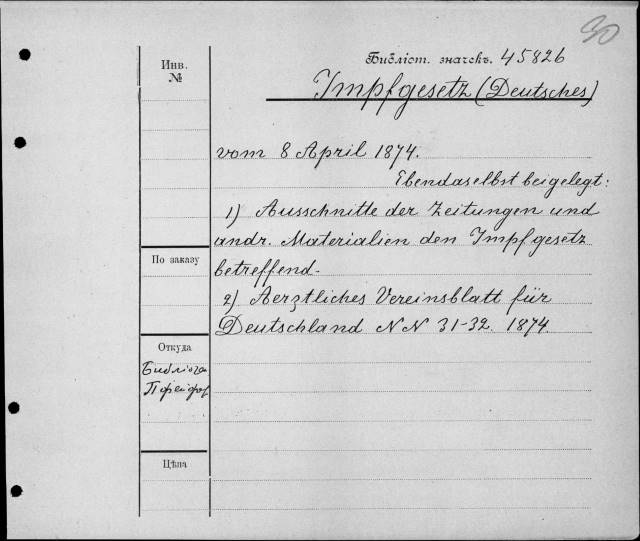 30
Библіот. значекъ. 45826
Инв.
№
Impfgesetz (Deutsches)
vom 8 April 1874.
Ebendaselbst beigelegt:
1) Ausschnitte der Zeitungen und
andr. Materialien den Impfgesetz
По заказу
betreffend.
2) Aerztliches Vereinsblatt für
Deutschland NN 31-32. 1874.
Откуда
Цѣна